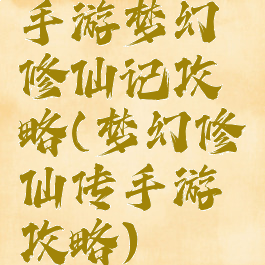 手游梦幻
修仙记攻
略(梦幻修
仙传手游
攻略)